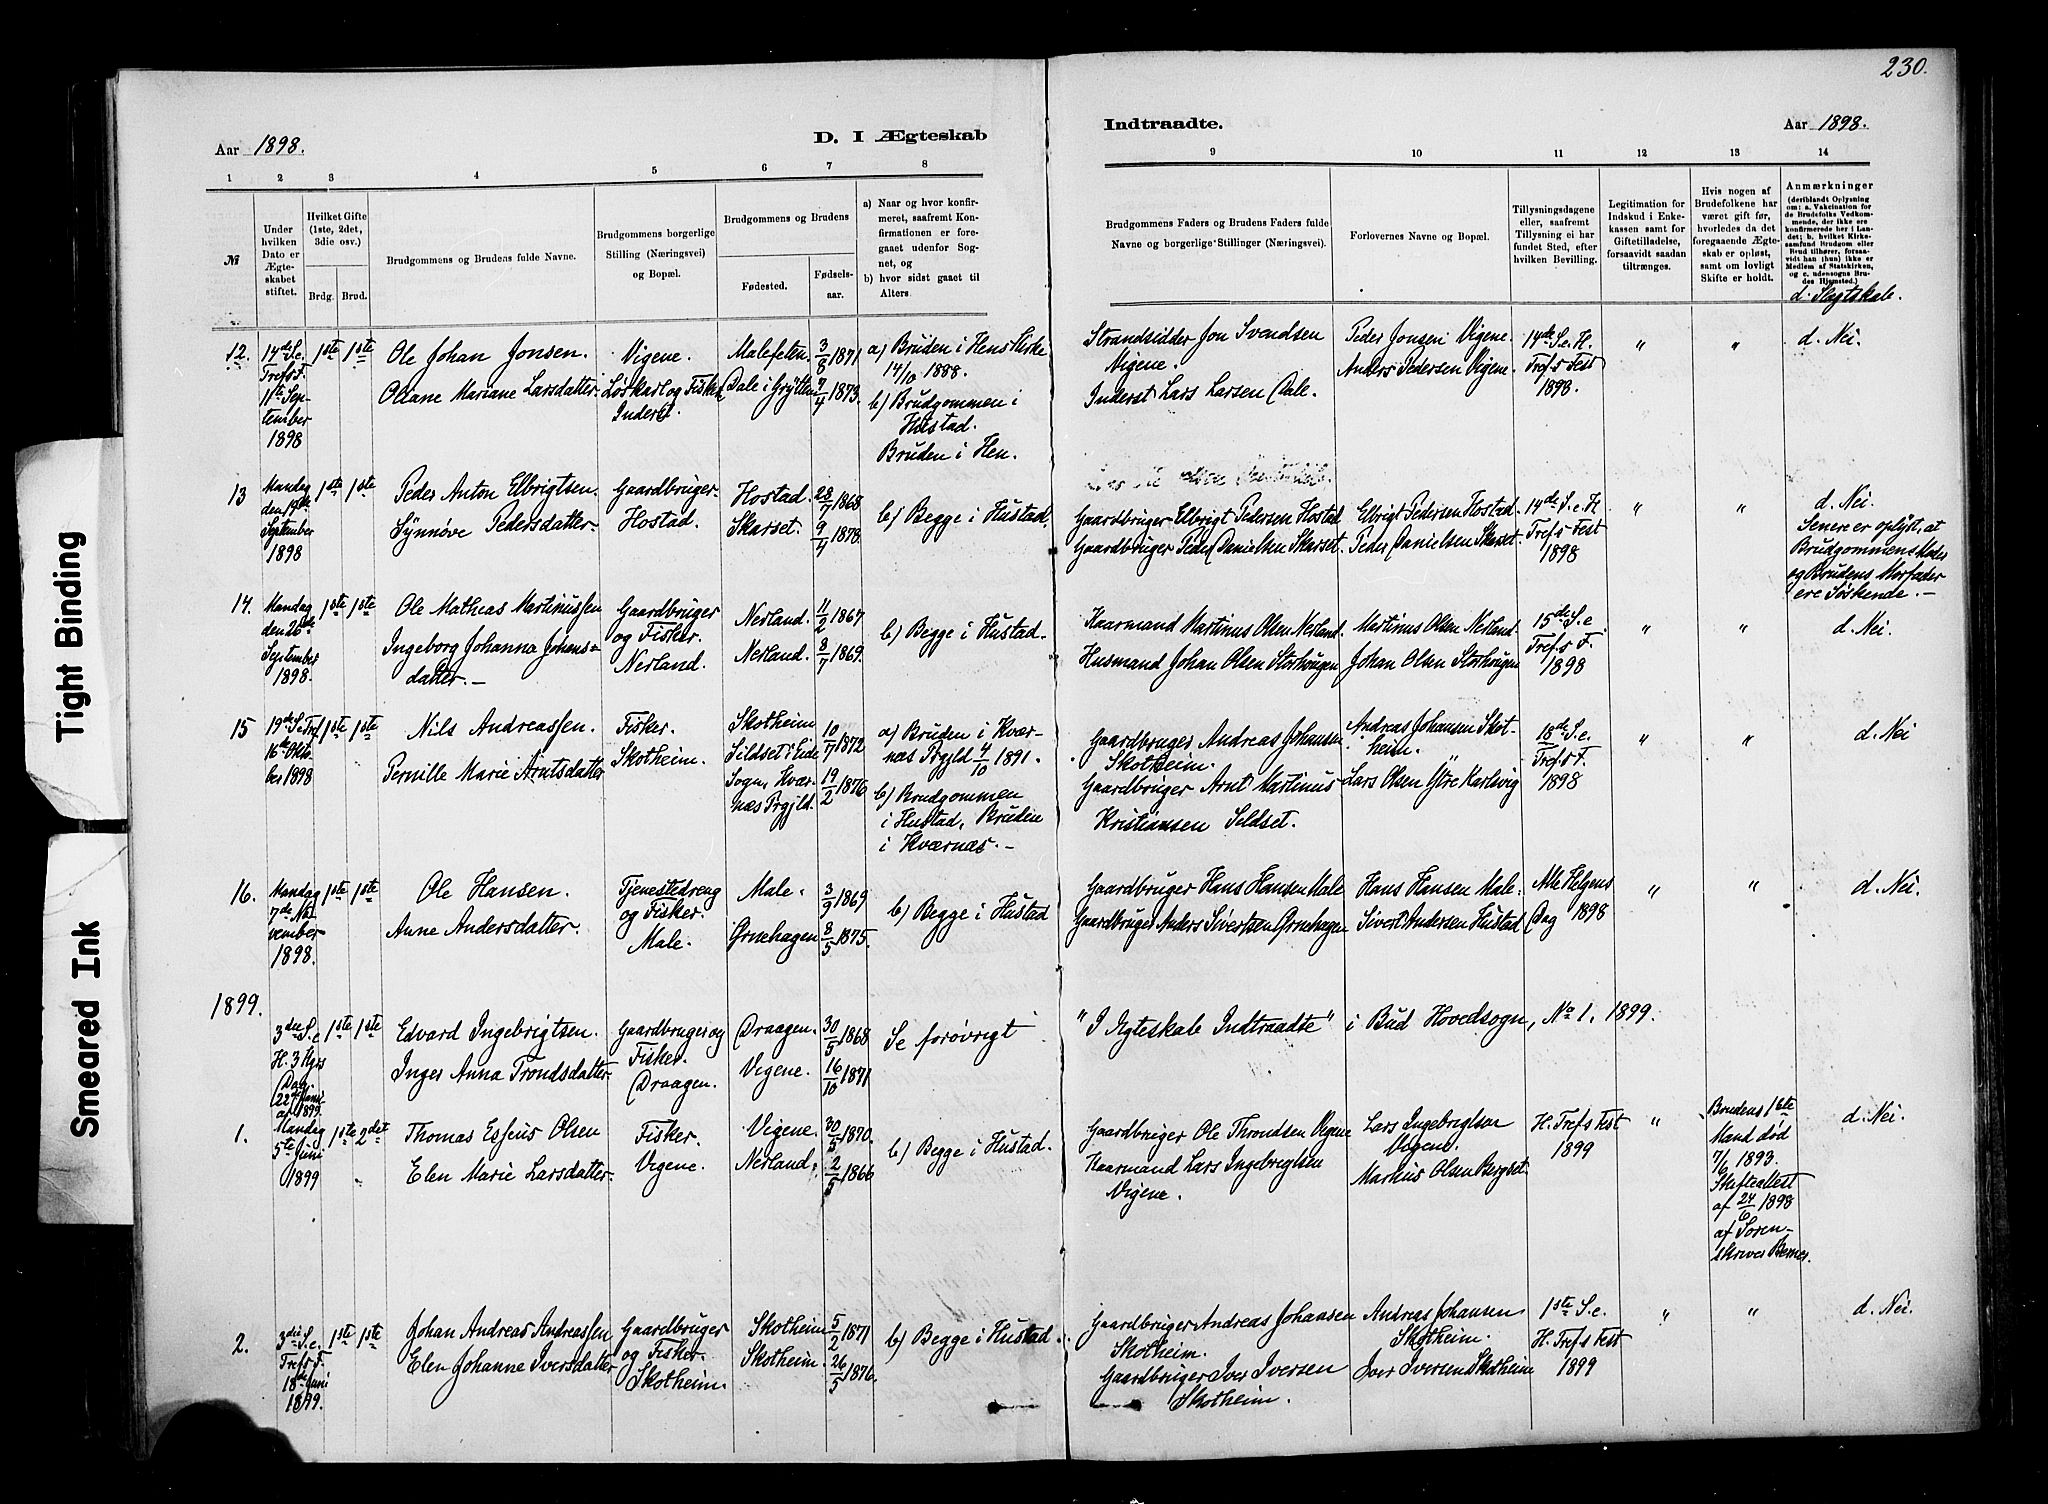 230.
Aar 1898.
D. I Ægteskab
Indtraadte.
Aar 1898.
1 2 3 4 5 6 7 8
9 10 11 12 13 14
№
Under
hvilken
Dato er
Ægte-
skabet
stiftet.
Hvilket Gifte
(1ste, 2det,
3die osv.)
Brdg. Brud.
Brudgommens og Brudens fulde Navne.
Brudgommens borgerlige
Stilling (Næringsvei)
og Bopæl.
Brudgommens og Brudens
Fødested.
Fødsels-
aar.
a) Naar og hvor konfir-
meret, saafremt Kon-
firmationen er fore-
gaaet udenfor Sog-
net, og
b) hvor sidst gaaet til
Alters.
Brudgommens Faders og Brudens Faders fulde
Navne og borgerlige Stillinger (Næringsvei).
Forlovernes Navne og Bopæl.
Tillysningsdagene
eller, saafremt
Tillysning ei har
fundet Sted, efter
hvilken Bevilling.
Legitimation for
Indskud i Enke-
kassen samt for
Giftetilladelse,
forsaavidt saadan
tiltrænges.
Hvis nogen af
Brudefolkene har
været gift før,
hvorledes da det
foregaaende Ægte-
skab er opløst,
samt om lovligt
Skifte er holdt.
Anmærkninger
(deriblandt Oplysning
om: a. Vakcination for
de Brudefolks Vedkom-
mende, der ikke ere
konfirmerede her i Lan-
det; b. hvilket Kirke-
samfund Brudgom eller
Brud tilhører, forsaa-
vidt han (hun) ikke er
Medlem af Statskirken,
og c. udensogns Bru-
des Hjemsted.)
d. Slægtskab.
12.
14de S. e.
Trefs F.
11te Sep-
tember
1898
1ste 1ste
Ole Johan Jonsen.
Oliane Mariane Larsdatter.
Vigene.
Løskarl og Fisker,
Inderst.
Malefeten. 3/8 1871
Dale i Grytten 4/4 1873.
a) Bruden i Hens Kirke
14/10 1888.
b) Brudgommen i
Hustad.
Bruden i Hen.
Strandsidder Jon Svendsen
Vigene.
Inderst Lars Larsen Dale.
Peder Jonsen Vigene
Anders Pedersen Vigene.
14de S. e. H.
Trefs Fest
1898.
" "
d. Nei.
13
Mandag
den 19de
September
1898
1ste 1ste
Peder Anton Elbrigtsen.
Synnøve Pedersdatter.
Gaardbruger.
Hostad.
Hostad. 28/7 1868
Skarset. 9/4 1878.
b) Begge i Hustad.
Gaardbruger Elbrigt Pedersen Hostad
Gaardbruger Peder Danielsen Skarset.
Elbrigt Pedersen Hostad.
Peder Danielsen Skarset.
14de S. e. H.
Trefs Fest
1898
" "
d. Nei.
Senere er oplyst, at
Brudgommens Moder
og Brudens Morfader
ere Søskende. —
14.
Mandag
den 26de
September
1898.
1ste 1ste
Ole Mathias Martinussen
Ingeborg Johanna Johans=
datter. —
Gaardbruger
og Fisker.
Nerland.
Nerland. 11/2 1867
Nerland. 8/7 1869.
b) Begge i Hustad.
Kaarmand Martinus Olsen Nerland.
Husmand Johan Olsen Storhougen
Martinus Olsen Nerland.
Johan Olsen Storhougen
15de S. e.
Trefs F.
1898
" "
d. Nei.
15
19de S. e. Tref
16de Okto-
ber 1898
1ste 1ste
Nils Andreassen.
Pernille Marie Arntsdatter
Fisker.
Skotheim.
Skotheim 10/7 1872
Sildset i Eide
Sogn, Kvær- 19/2 1876
næs Prgjld.
a) Bruden i Kvær-
næs Prgjld 4/10 1891.
b) Brudgommen
i Hustad, Bruden
i Kværnæs. —
Gaardbruger Andreas Johansen
Skotheim.
Gaardbruger Arnt Martinus
Kristiansen Sildset.
Andreas Johansen Skot-
heim.
Lars Olsen Ytre Karlsvig
18de S. e.
Trefs F.
1898
" "
d. Nei
16.
Mandag
7de No-
vember
1898.
1ste 1ste
Ole Hansen.
Anne Andersdatter.
Tjenestedreng
og Fisker.
Male.
Male. 3/9 1869
Ørnehagen 8/5 1875.
b) Begge i Hustad
Gaardbruger Hans Hansen Male
Gaardbruger Anders Sivertsen Ørnehagen
Hans Hansen Male.
Sivert Andersen Hustad
Alle Helgens
Dag 1898
" "
d. Nei.
1899.
3die S. e
H. 3 Kgrs
Dag.
22de Janu
ar 1899.
1ste 1ste
Edvard Ingebrigtsen.
Inger Anna Trondsdatter.
Gaardbruger og
Fisker.
Draagen.
Draagen. 30/5 1868
Vigene. 16/10 1871
Se forøvrigt "I Ægteskab Indtraadte" i Bud Hovedsogn, No 1. 1899.
1.
Mandag
5te Juni
1899
1ste 2det
Thomas Esseus Olsen
Elen Marie Larsdatter.
Fisker.
Vigene.
Vigene. 30/5 1870.
Nerland. 2/5 1866
b) Begge i Hustad.
Gaardbruger Ole Throndsen Vigene
Kaarmand Lars Ingebrigtsen
Vigene.
Lars Ingebrigtsen
Vigene.
Markus Olsen Bergset.
H. Trefs Fest
1899
"
Brudens 1ste
Mand død
7/6 1893.
Skifteattest
af 24/6 1898
af Soren-
skriver Berner.
d. Nei.
2.
3die S. e.
Trefs F.
18de Juni
1899.
1ste 1ste
Johan Andreas Andreassen
Elen Johanne Iversdatter
Gaardbruger
og Fisker.
Skotheim.
Skotheim 5/2 1871
Skotheim. 26/5 1876.
b) Begge i Hustad.
Gaardbruger Andreas Johansen
Skotheim.
Gaardbruger Iver Iversen
Skotheim.
Andreas Johansen
Skotheim.
Iver Iversen Skotheim
1ste S. e.
H. Trefs Fest
1899
" "
d. Nei.
Tight Binding
Smeared Ink